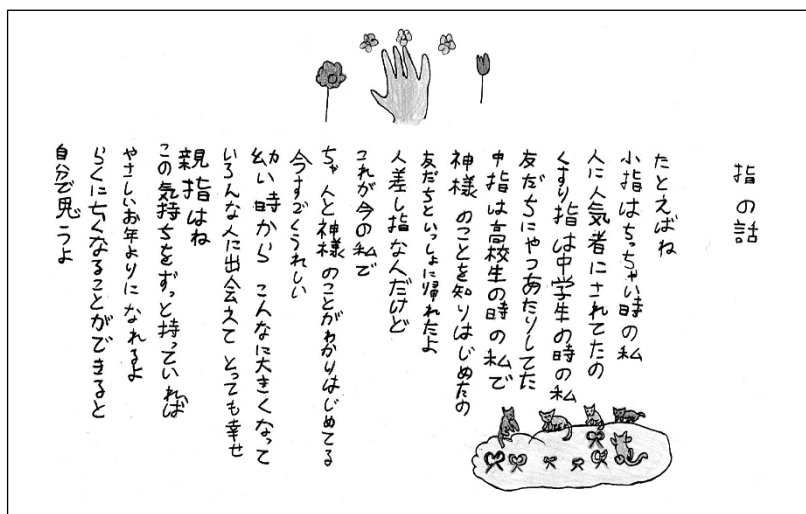 指の話
たとえばね
小指はちっちゃい時の私
人に人気者にされてたの
くすり指は中学生の時の私
友だちにやつあたりしてた
中指は高校生の時の私で
神様のことを知りはじめたの
友だちといっしょに帰れたよ
人差し指な人だけど
これが今の私で
ちゃんと神様のことがわかりはじめてる
今すごくうれしい
幼い時から こんなに大きくなって
いろんな人に出会えて とっても幸せ
親指はね
この気持ちをずっと持っていれば
やさしいお年よりに なれるよ
らくに亡くなることができると
自分で思うよ